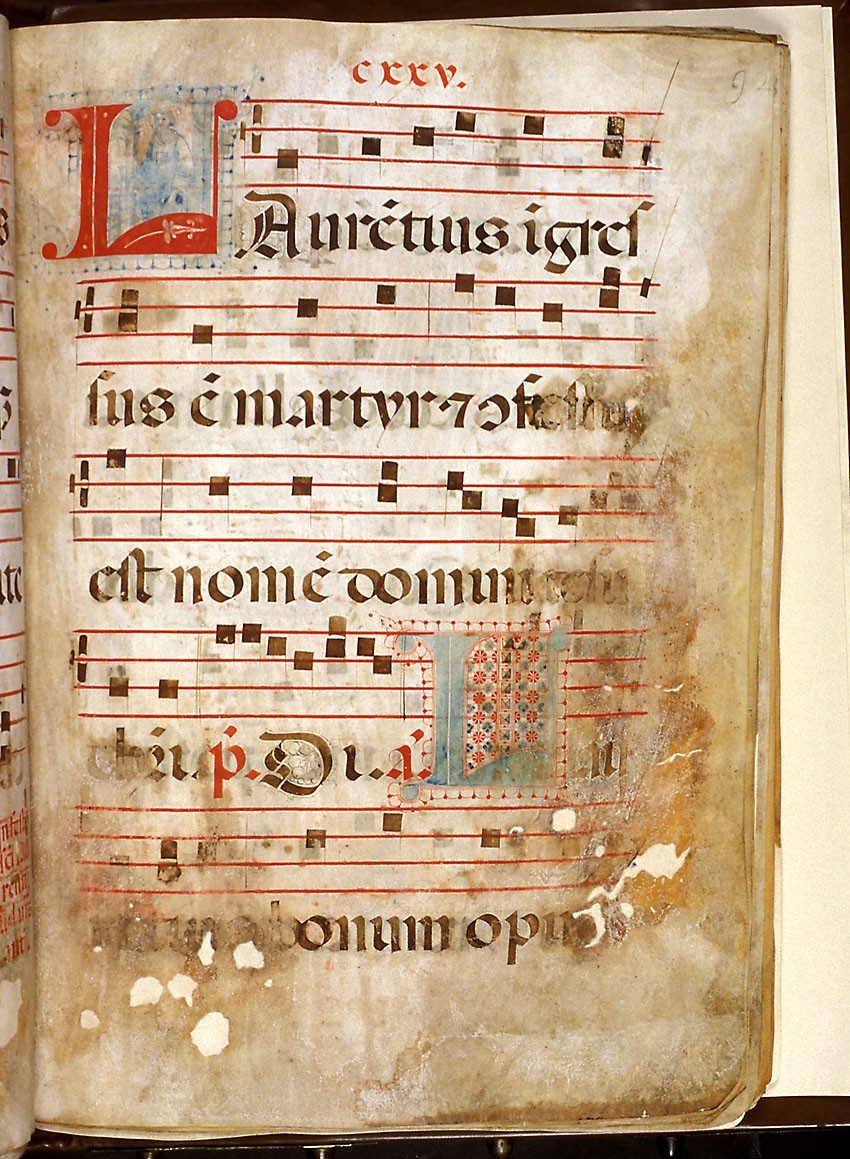 cxxv.
LAurẽtius igres
sus ẽ martyr · ⁊ ↄfessus
est nomẽ domini iesu
chr̃i. p̃. Di. ã. Lau
bonum opus